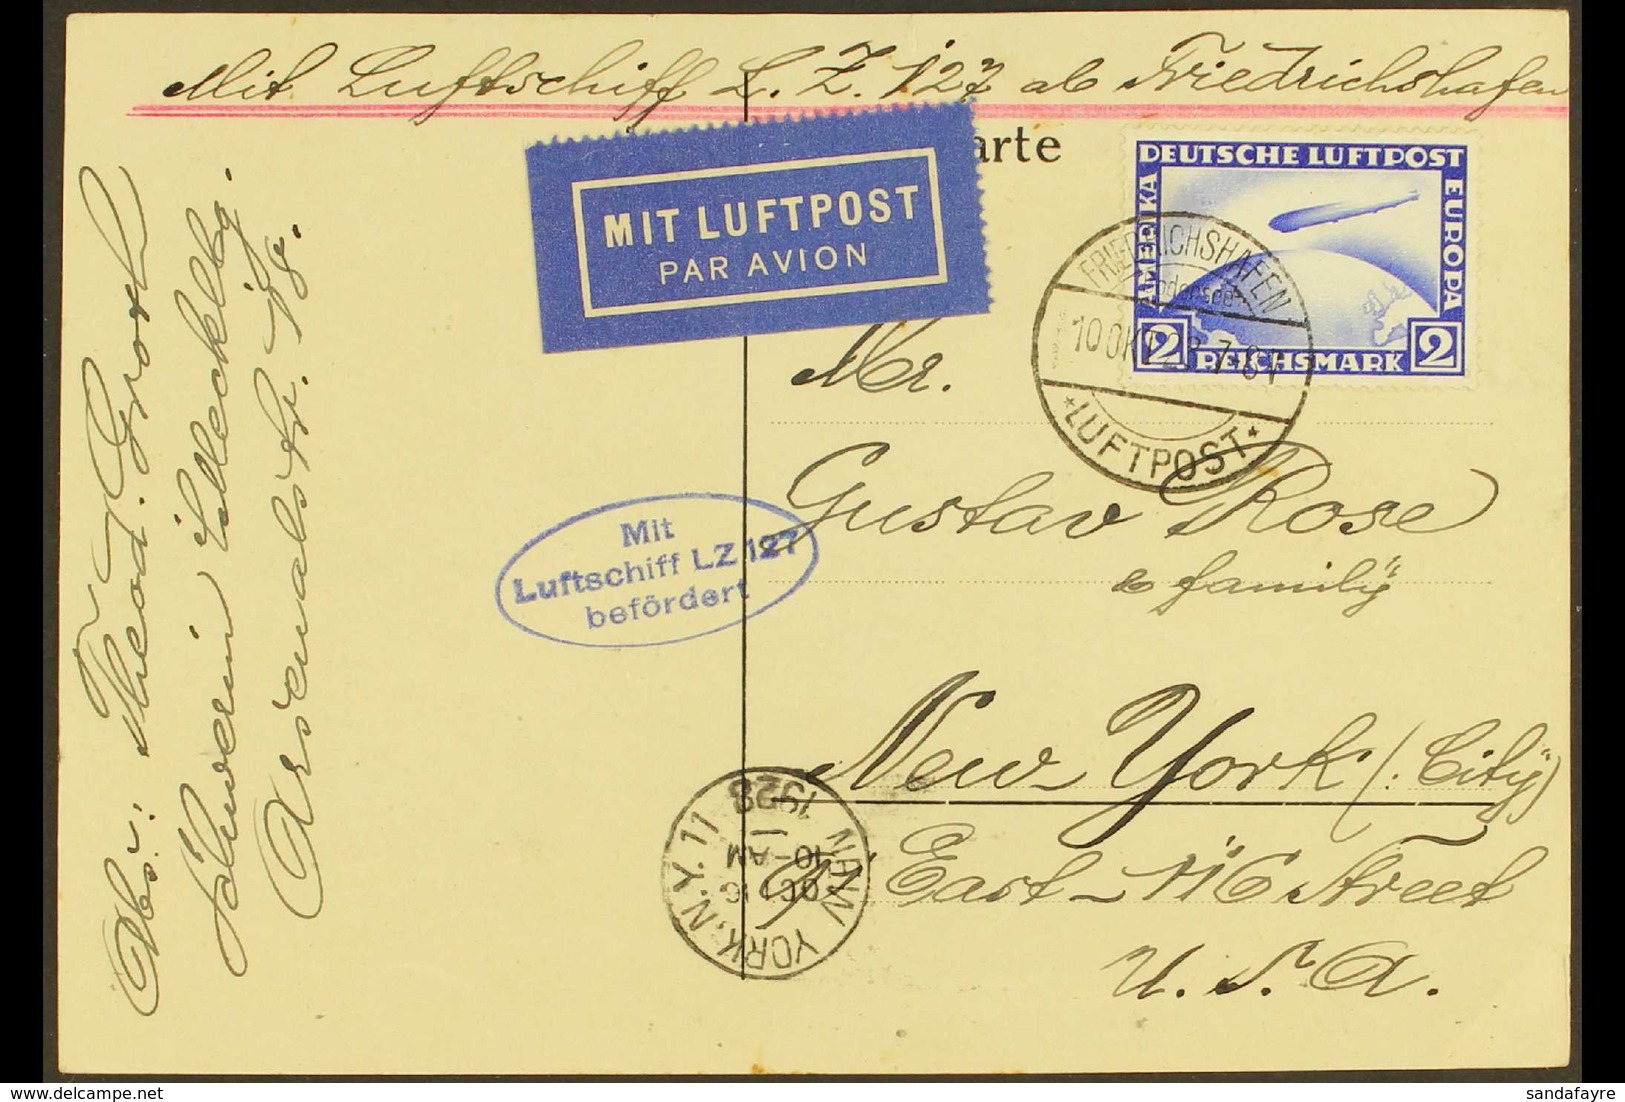 Mit Luftschiff L. Z. 127 ab Friedrichshafen
arte
MIT LUFTPOST
PAR AVION
DEUTSCHE LUFTPOST
AMERIKA
EUROPA
2 REICHSMARK 2
FRIEDRICHSHAFEN
Bodensee
10 OKT 28 7-8 V
* LUFTPOST *
Mr.
Gustav Rose
& family
New York (: City :)
East – 116 Street
U. S. A.
Mit
Luftschiff LZ 127
befördert
NEW YORK, N.Y. 11
OCT 16
10-AM
1928
Abs.: Theod. Grosch
Schwerin i/Mecklbg.
Arsenalstr. 18.
sandafayre